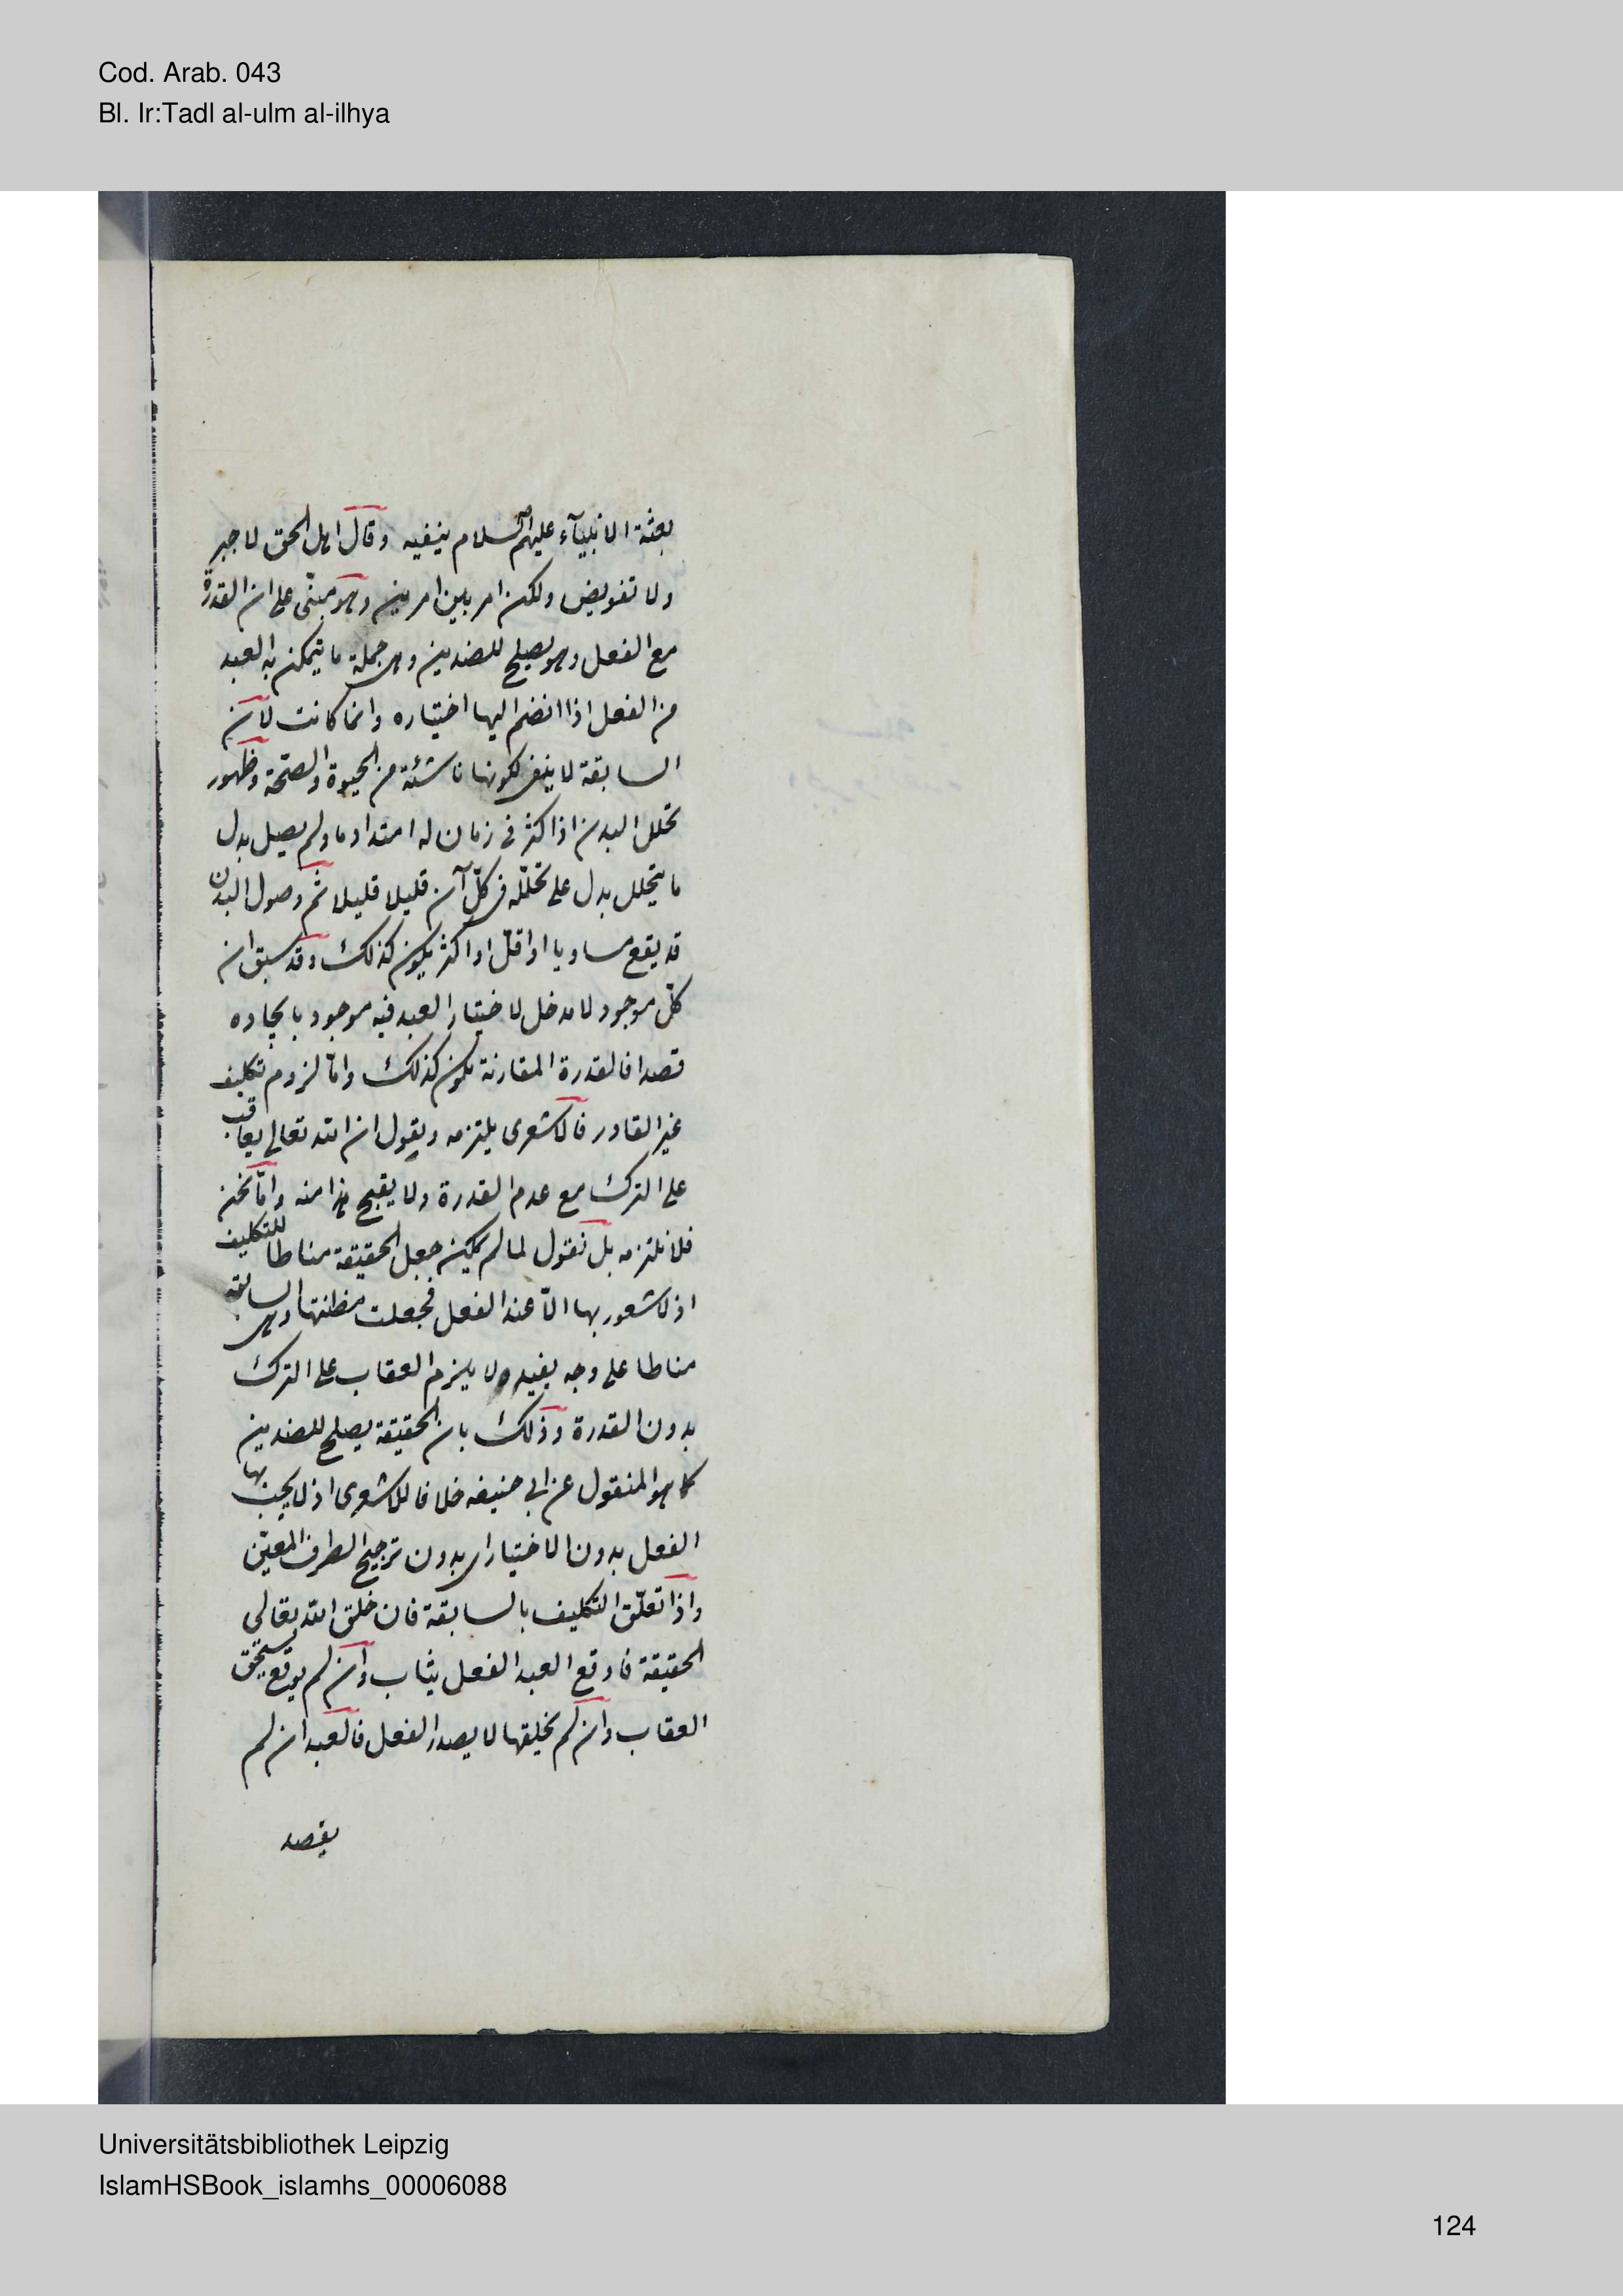 Cod. Arab. 043
Bl. Ir:Tadl al-ulm al-ilhya
بعثة الانبيآء عليهم السلام ينفيه وقال اهل الحق لا جبر
ولا تفويض ولكن امر بين امرين وهو مبنى على ان القدرة
مع الفعل وهو يصلح للضدين وهى جملة ما يتمكن به العبد
من الفعل اذا انضم اليها اختياره وانما كانت لان
السابقة لا ينفى لكونها ناشئة من الحيوة والصحة وظهور
تحلل البدن اذا كثر فى زمان له امتداد ما ولم يصل بدل
ما يتحلل يدل على تحلّله فى كلّ آن قليلا قليلا ثم وصول البدن
قد يقع مساويا او اقلّ او اكثر يكون كذلك وقد سبق ان
كلّ موجود لا مدخل لاختيار العبد فيه موجود بايجاده
قصدا فالقدرة المقارنة يكون كذلك وامّا لزوم تكليف
غير القادر فالاشعرى يلتزمه ويقول ان الله تعالى يعاقب
على الترك مع عدم القدرة ولا يقبح هذا منه وامّا نحن
فلا نلتزمه بل نقول لما لم يمكن جعل الحقيقة مناطا للتكليف
اذ لا شعور بها الّا عند الفعل فجعلت مظنتها وهى السابقة
مناطا على وجه يفيد ولا يلزم العقاب على الترك
بدون القدرة وذلك بان الحقيقة يصلح للضدين
كما هو المنقول عن ابى حنيفه خلافا للاشعرى اذ لا يجب بها
الفعل بدون الاختيار اى بدون ترجيح الطرف المعيّن
واذا تعلّق التكليف بالسابقة فان خلق الله تعالى
الحقيقة فاوقع العبد الفعل يثاب وان لم يوقع يستحق
العقاب وان لم يخلقها لا يصدر الفعل فالعبد ان لم
يقصد
Universitätsbibliothek Leipzig
IslamHSBook_islamhs_00006088
124